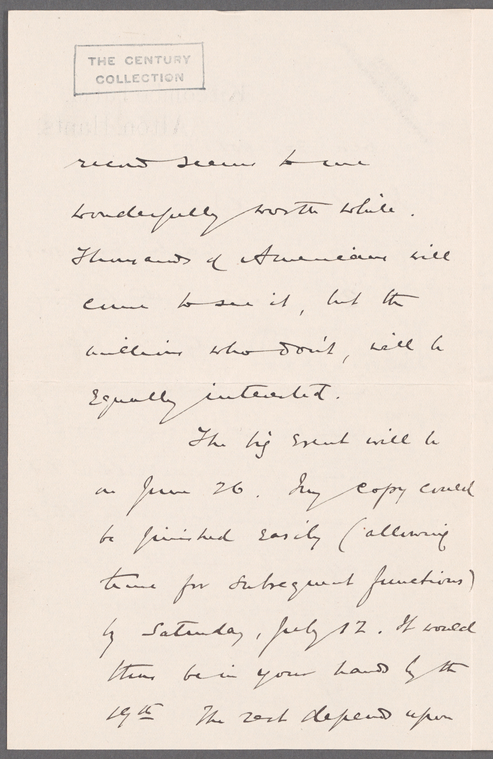 THE CENTURY
COLLECTION
record seems to me
wonderfully worth while.
Thousands of Americans will
come to see it, but the
millions who don't, will be
equally interested.
The big event will be
on June 26. My copy could
be finished easily (allowing
time for subsequent functions)
by Saturday, July 12. It would
thus be in your hands by the
19th The rest depends upon